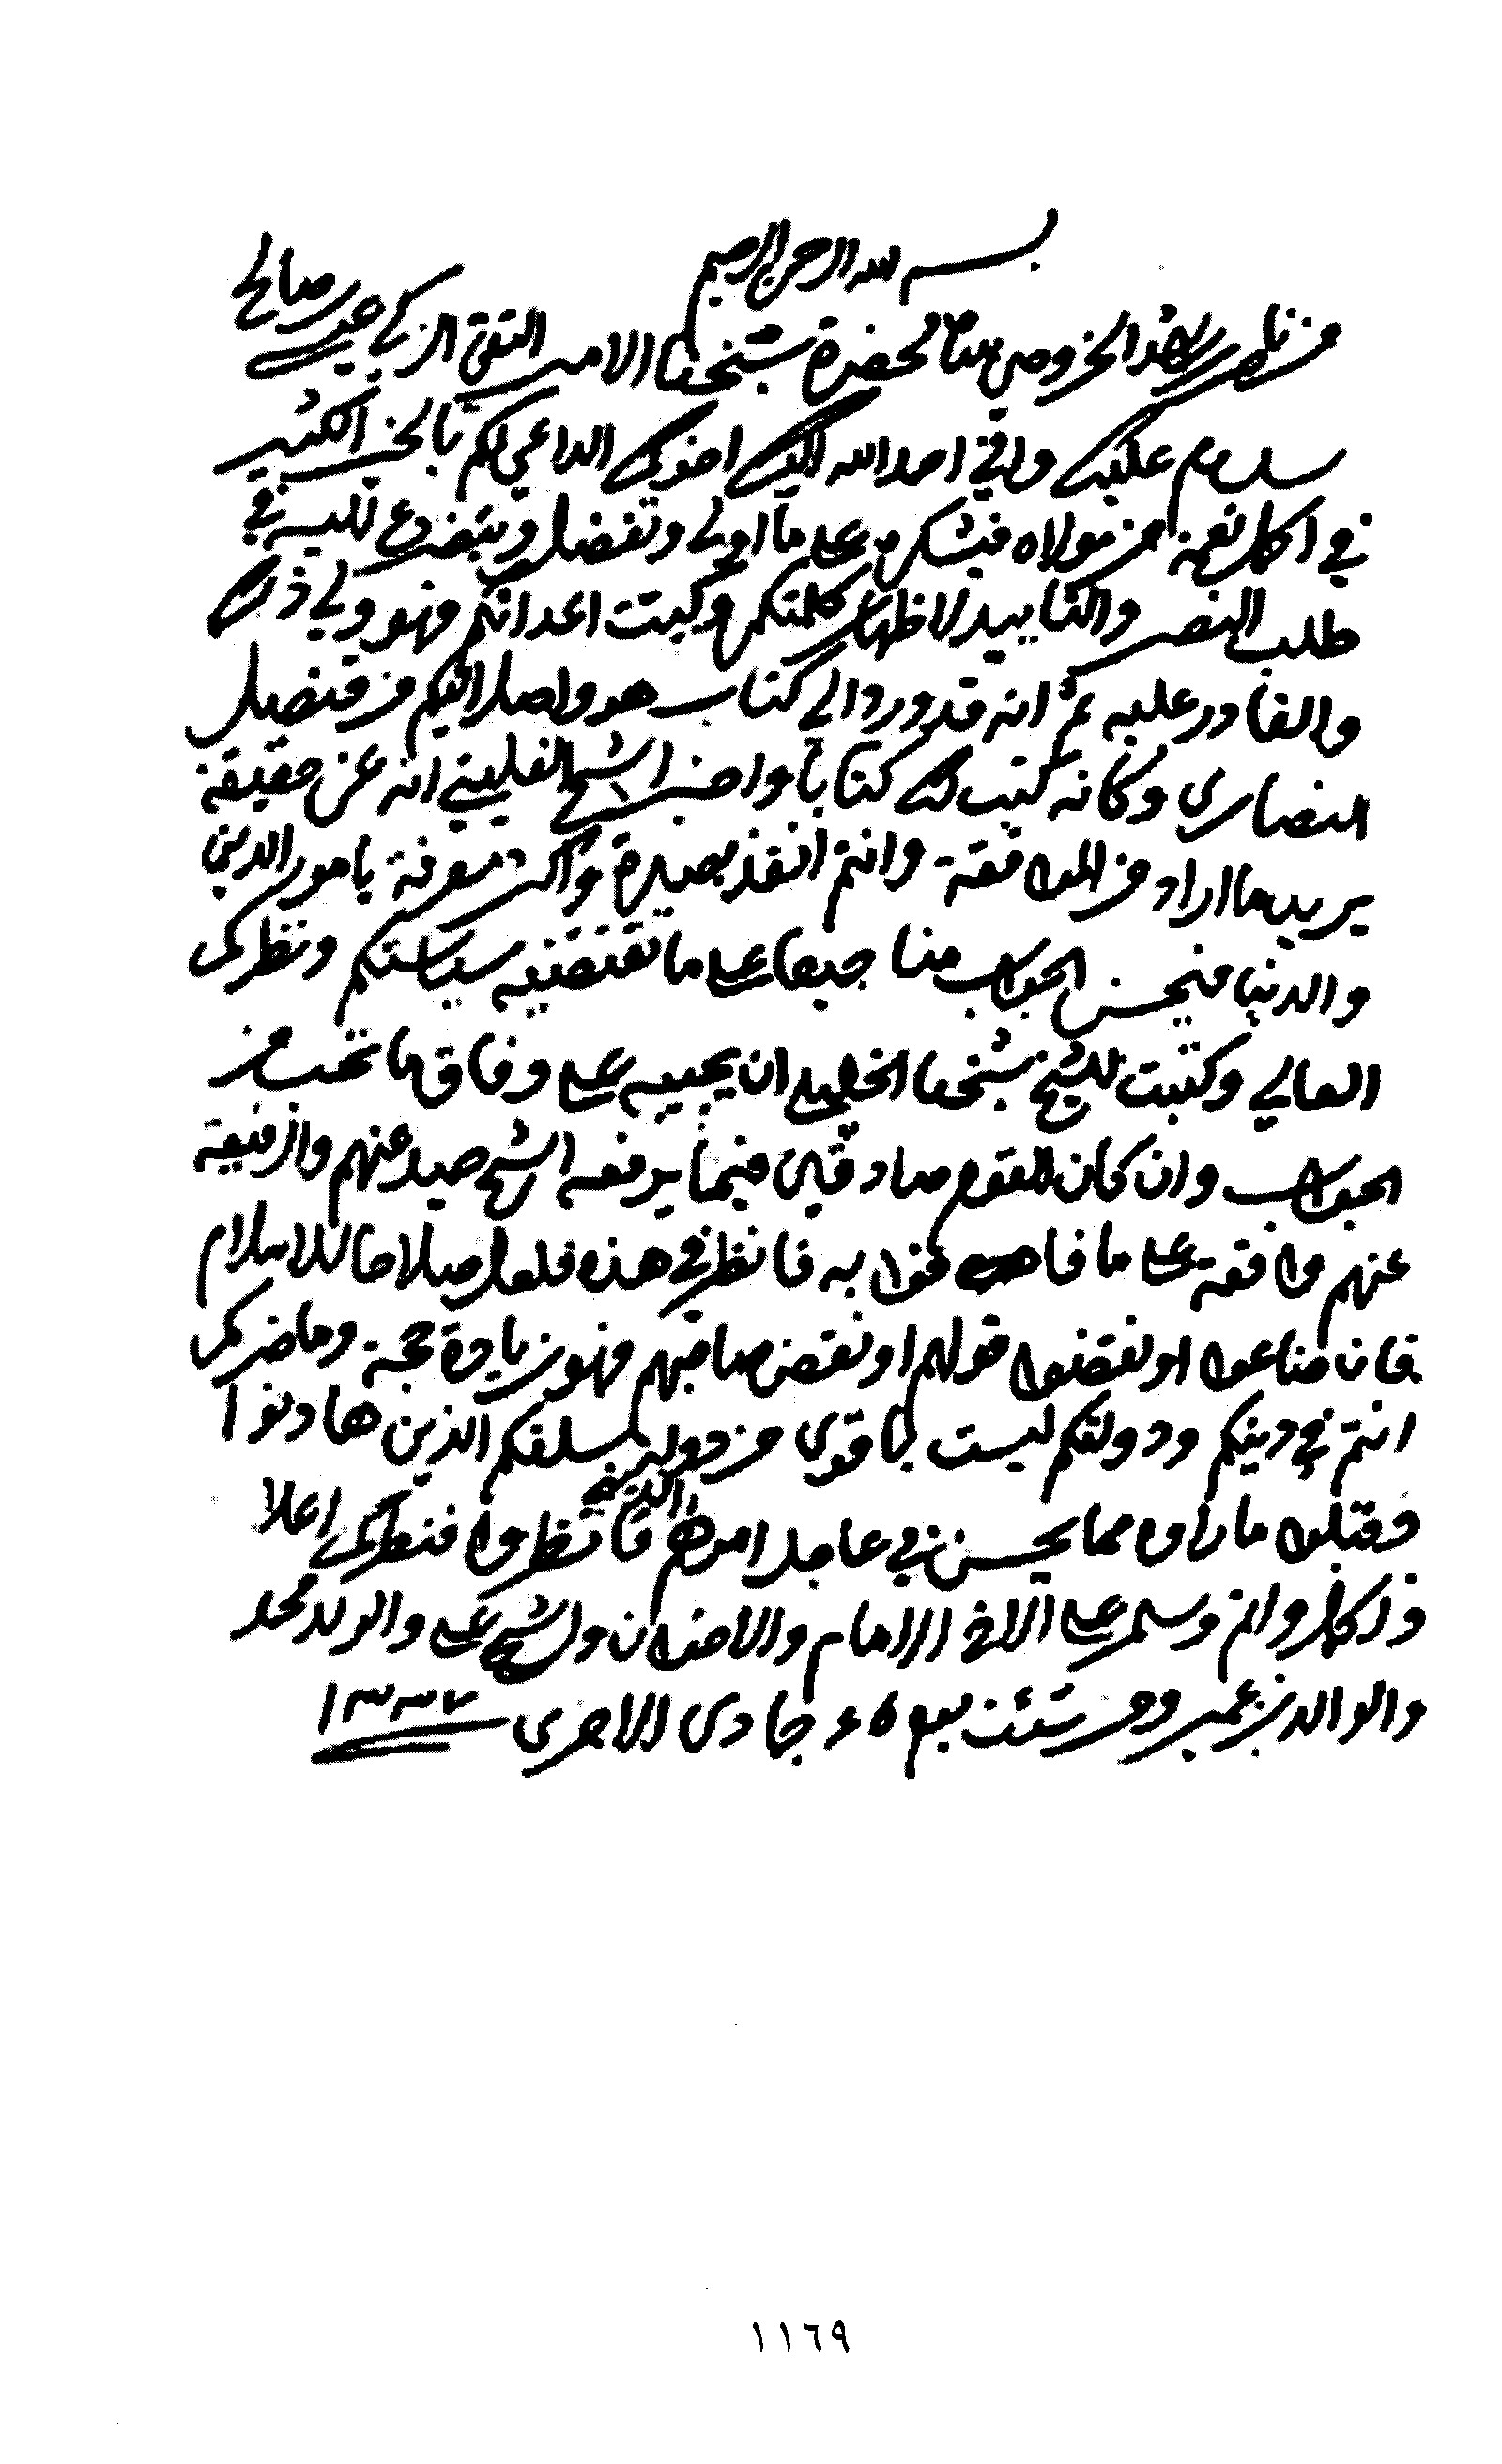 بسم الله الرحمن الرحيم
من ناصر بن راشد الخروصي سلام لحضرة شيخنا الامير التقي الزكي عيسى بن صالح
سلام عليك واني احمد الله اليك اخوك الداعي لكم بالخير الكثير
في اكمل نعمة من مولاه فيشكره على ما اولى وتفضل ويتضرع اليه في
طلب النصر والتاييد لاظهار كلمتكم وكبت اعدائكم فهو ولي ذلك
والقادر عليه ثم انه قد ورد الي كتاب هو واصل اليكم من قنصل
النصارى وكانه كتب لك كتابا واخبر الشيخ الغليتي انه عن حقيقة
يريد ما اراد من الموافقة وانتم انفذ بصيرة واكثر معرفة بامور الدين
والدنيا فيحسن الجواب منا جميعا على ما تقتضيه سياستكم ونظركم
العالي وكتبت للشيخ شيخنا الخليلي ان يجيبه على وفاق ما تحب من
الجواب وان كان القوم صادقين فيما يرفعه الشيخ حميد عنهم وارفيعة
عنهم موافقة على ما فاهوا به فانظر في هذه فلعل صلاحا للاسلام
فان ضاعوا او نقضوا قولهم او نقض صاحبهم فهو زيادة حجة وما ضركم
انتم في دينكم ودولتكم ليست باقوى من دولة سلفكم الذين هادنوا
الدينية
وقبلوا ما راوه مما يحسن في عاجل امرهم فانظروا فنظركم اعلا
واكمل واتم وسلم على الاخ الامام والاخوان والشيخ علي والولد محمد
والوالد بن عمير ومن شئت يوم ٥ جمادى الاخرى ١٣٣٧
١١٦٩